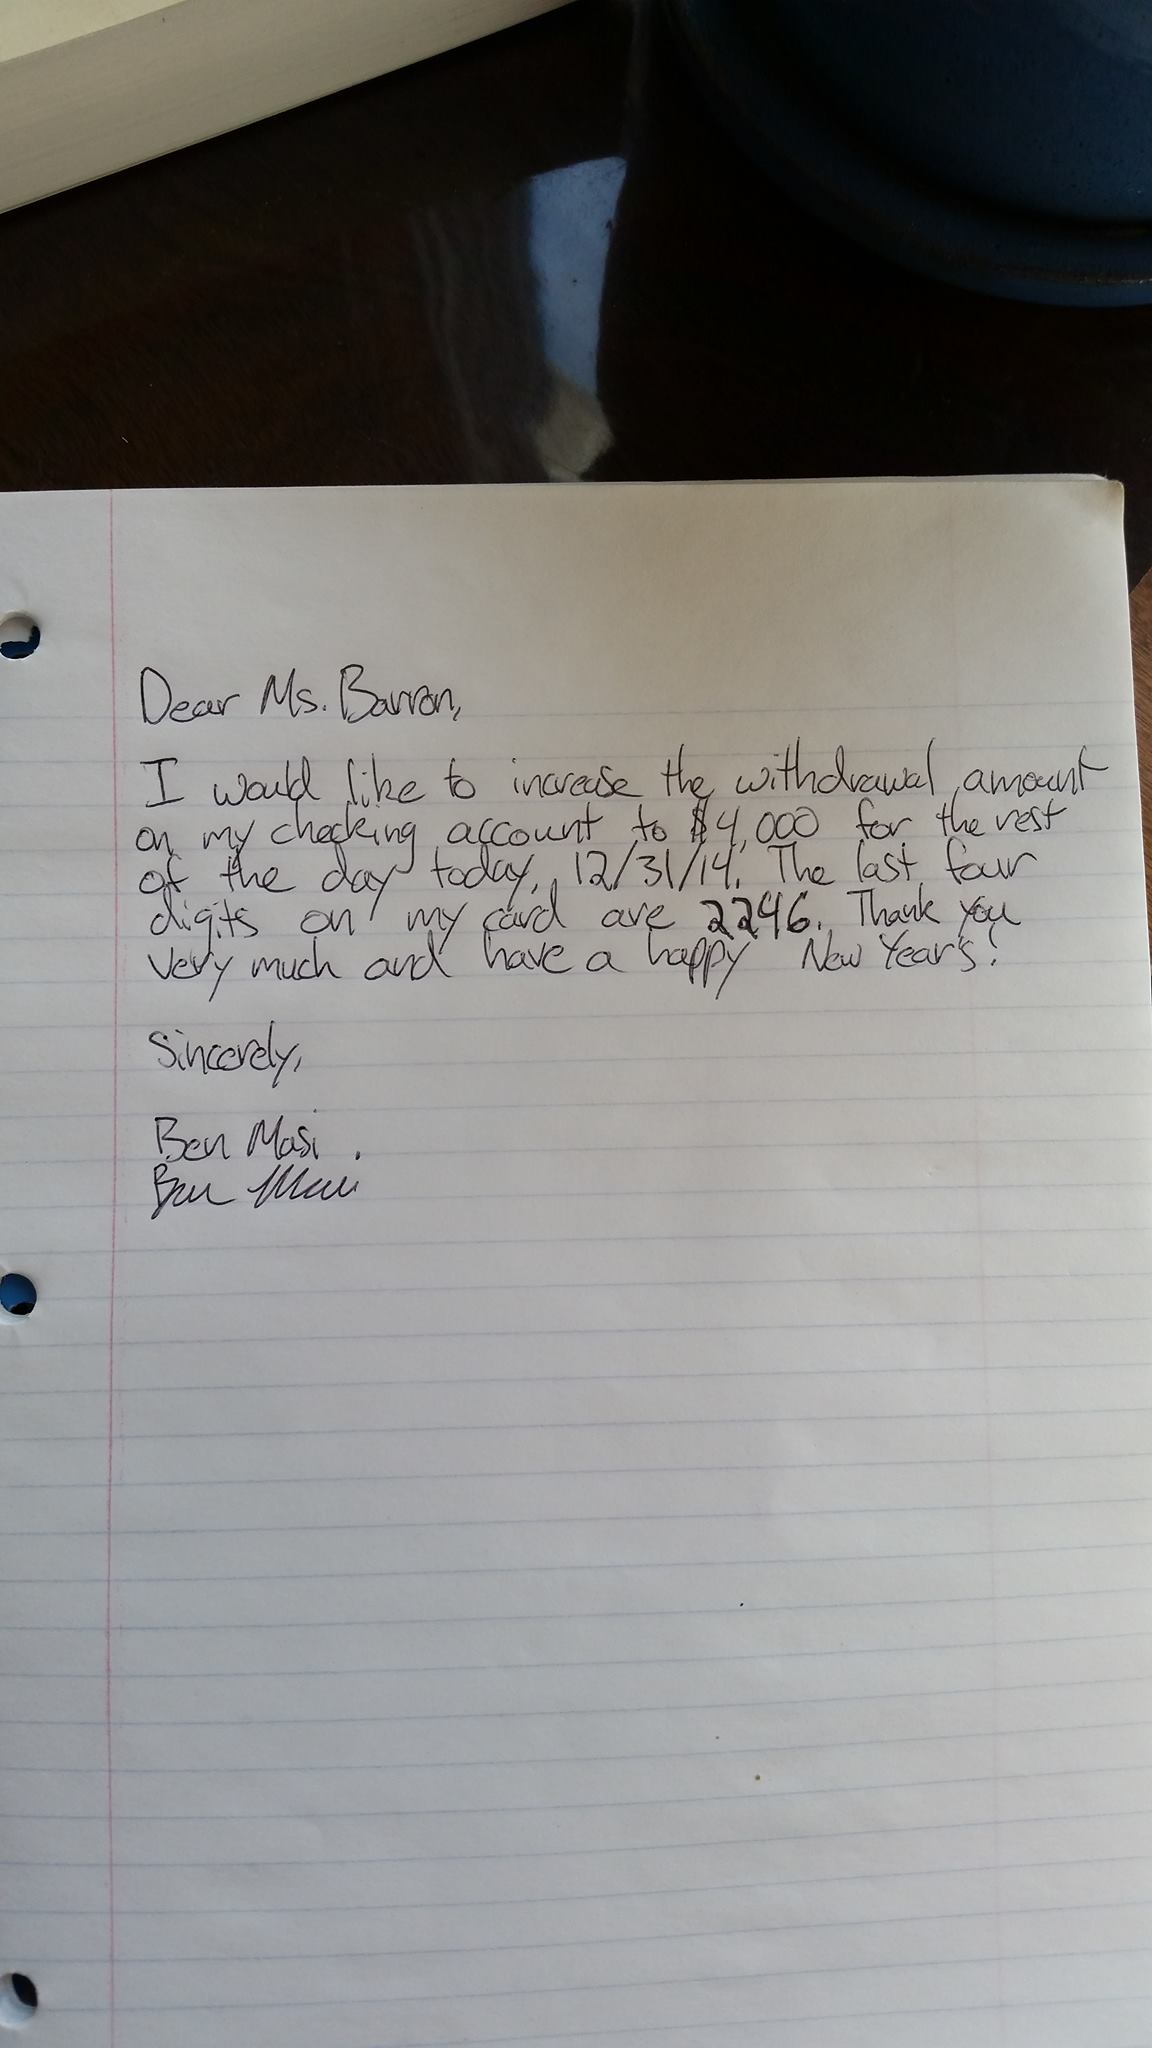 Dear Ms. Barron,
I would like to increase the withdrawal amount
on my checking account to $4,000 for the rest
of the day today, 12/31/14. The last four
digits on my card are 2246. Thank you
very much and have a happy New Year's!
Sincerely,
Ben Masi .
Ben Masi